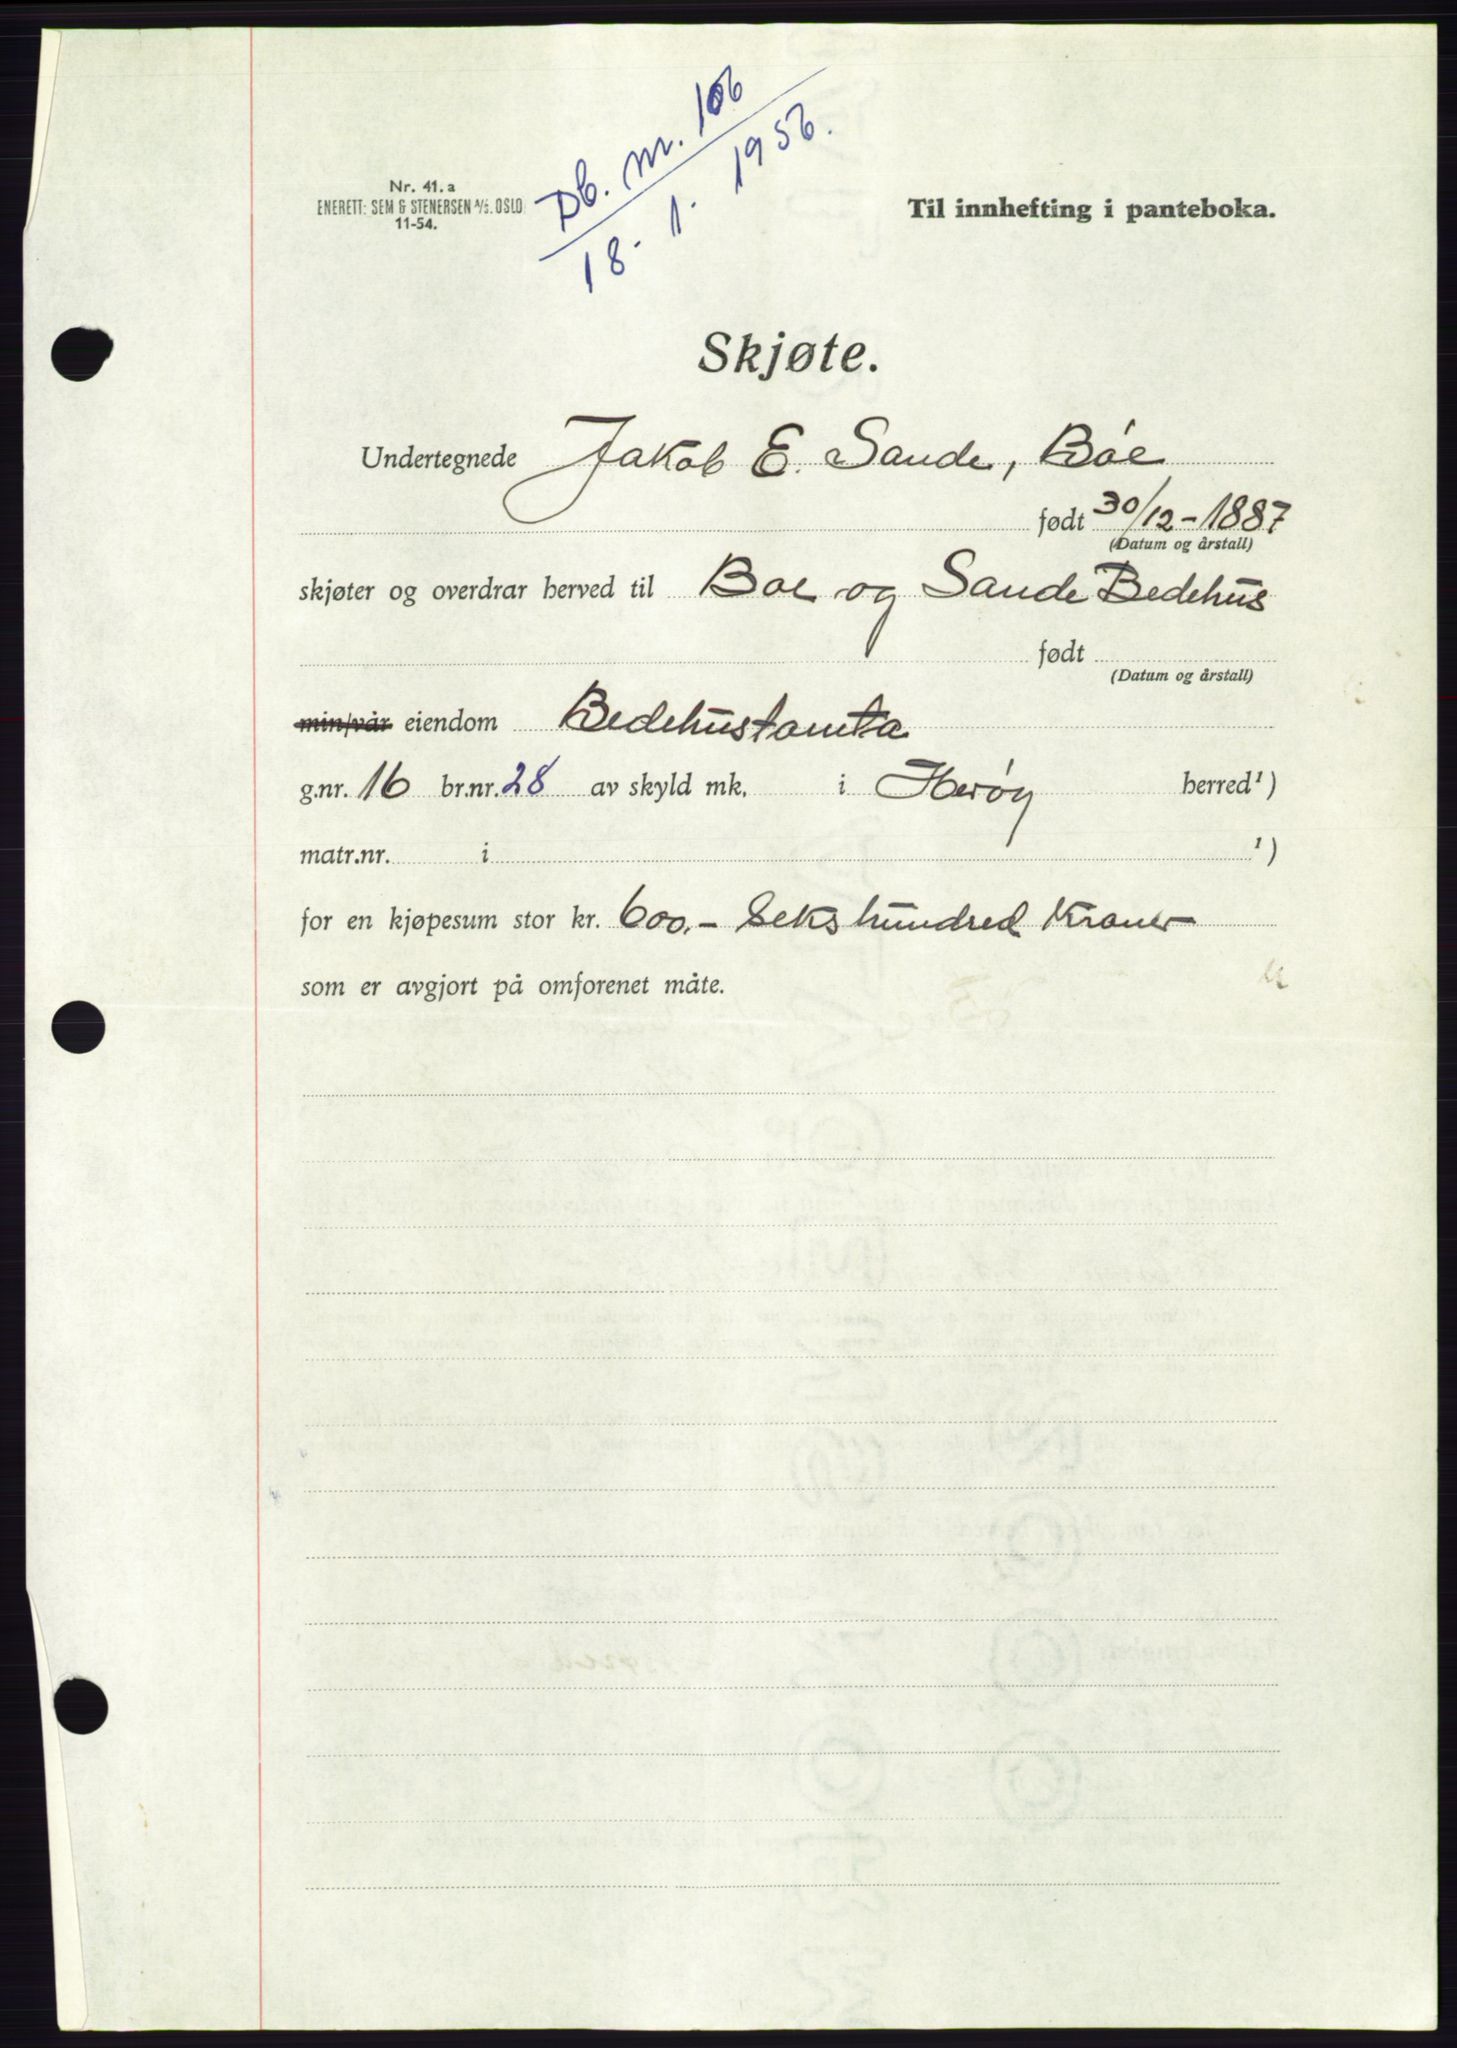 Db. nr. 106
18. 1. 1956.
Nr. 41.a
ENERETT: SEM & STENERSEN A/S. OSLO
11-54.
Til innhefting i panteboka.
Skjøte.
Undertegnede Jakob E. Sande, Bóe
født 30/12-1887
(Datum og årstall)
skjøter og overdrar herved til Boe og Sande Bedehus
født
(Datum og årstall)
min/vår eiendom Bedehustomta
g.nr. 16 br.nr. 28 av skyld mk. i Herøy herred¹)
matr.nr. i ¹)
for en kjøpesum stor kr. 600.- Sekshundred Kroner
som er avgjort på omforenet måte.